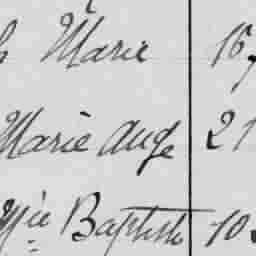 Marie 16
Marie Ange 21
Mie Baptiste 10